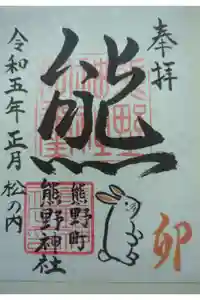 奉拝
熊
令和五年正月松の内
熊野町
熊野神社
卯